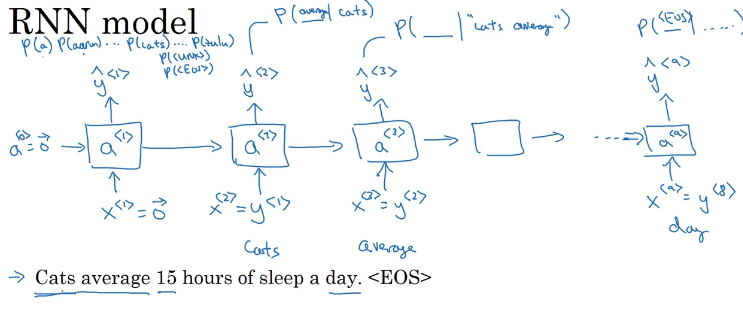 RNN model
P(a) P(aaron) ... P(cats) ... P(zulu)
P(<UNK>)
P(<EOS>)
P(average | cats)
P(__ | "cats average")
P(<EOS> | .....)
ŷ<1> ŷ<2> ŷ<3> ŷ<9>
a<0> = 0⃗ → a<1> → a<2> → a<3> → → ----⇒ a<9>
x<1> = 0⃗ x<2> = y<1> x<3> = y<2> x<9> = y<8>
Cats average day
→ Cats average 15 hours of sleep a day. <EOS>